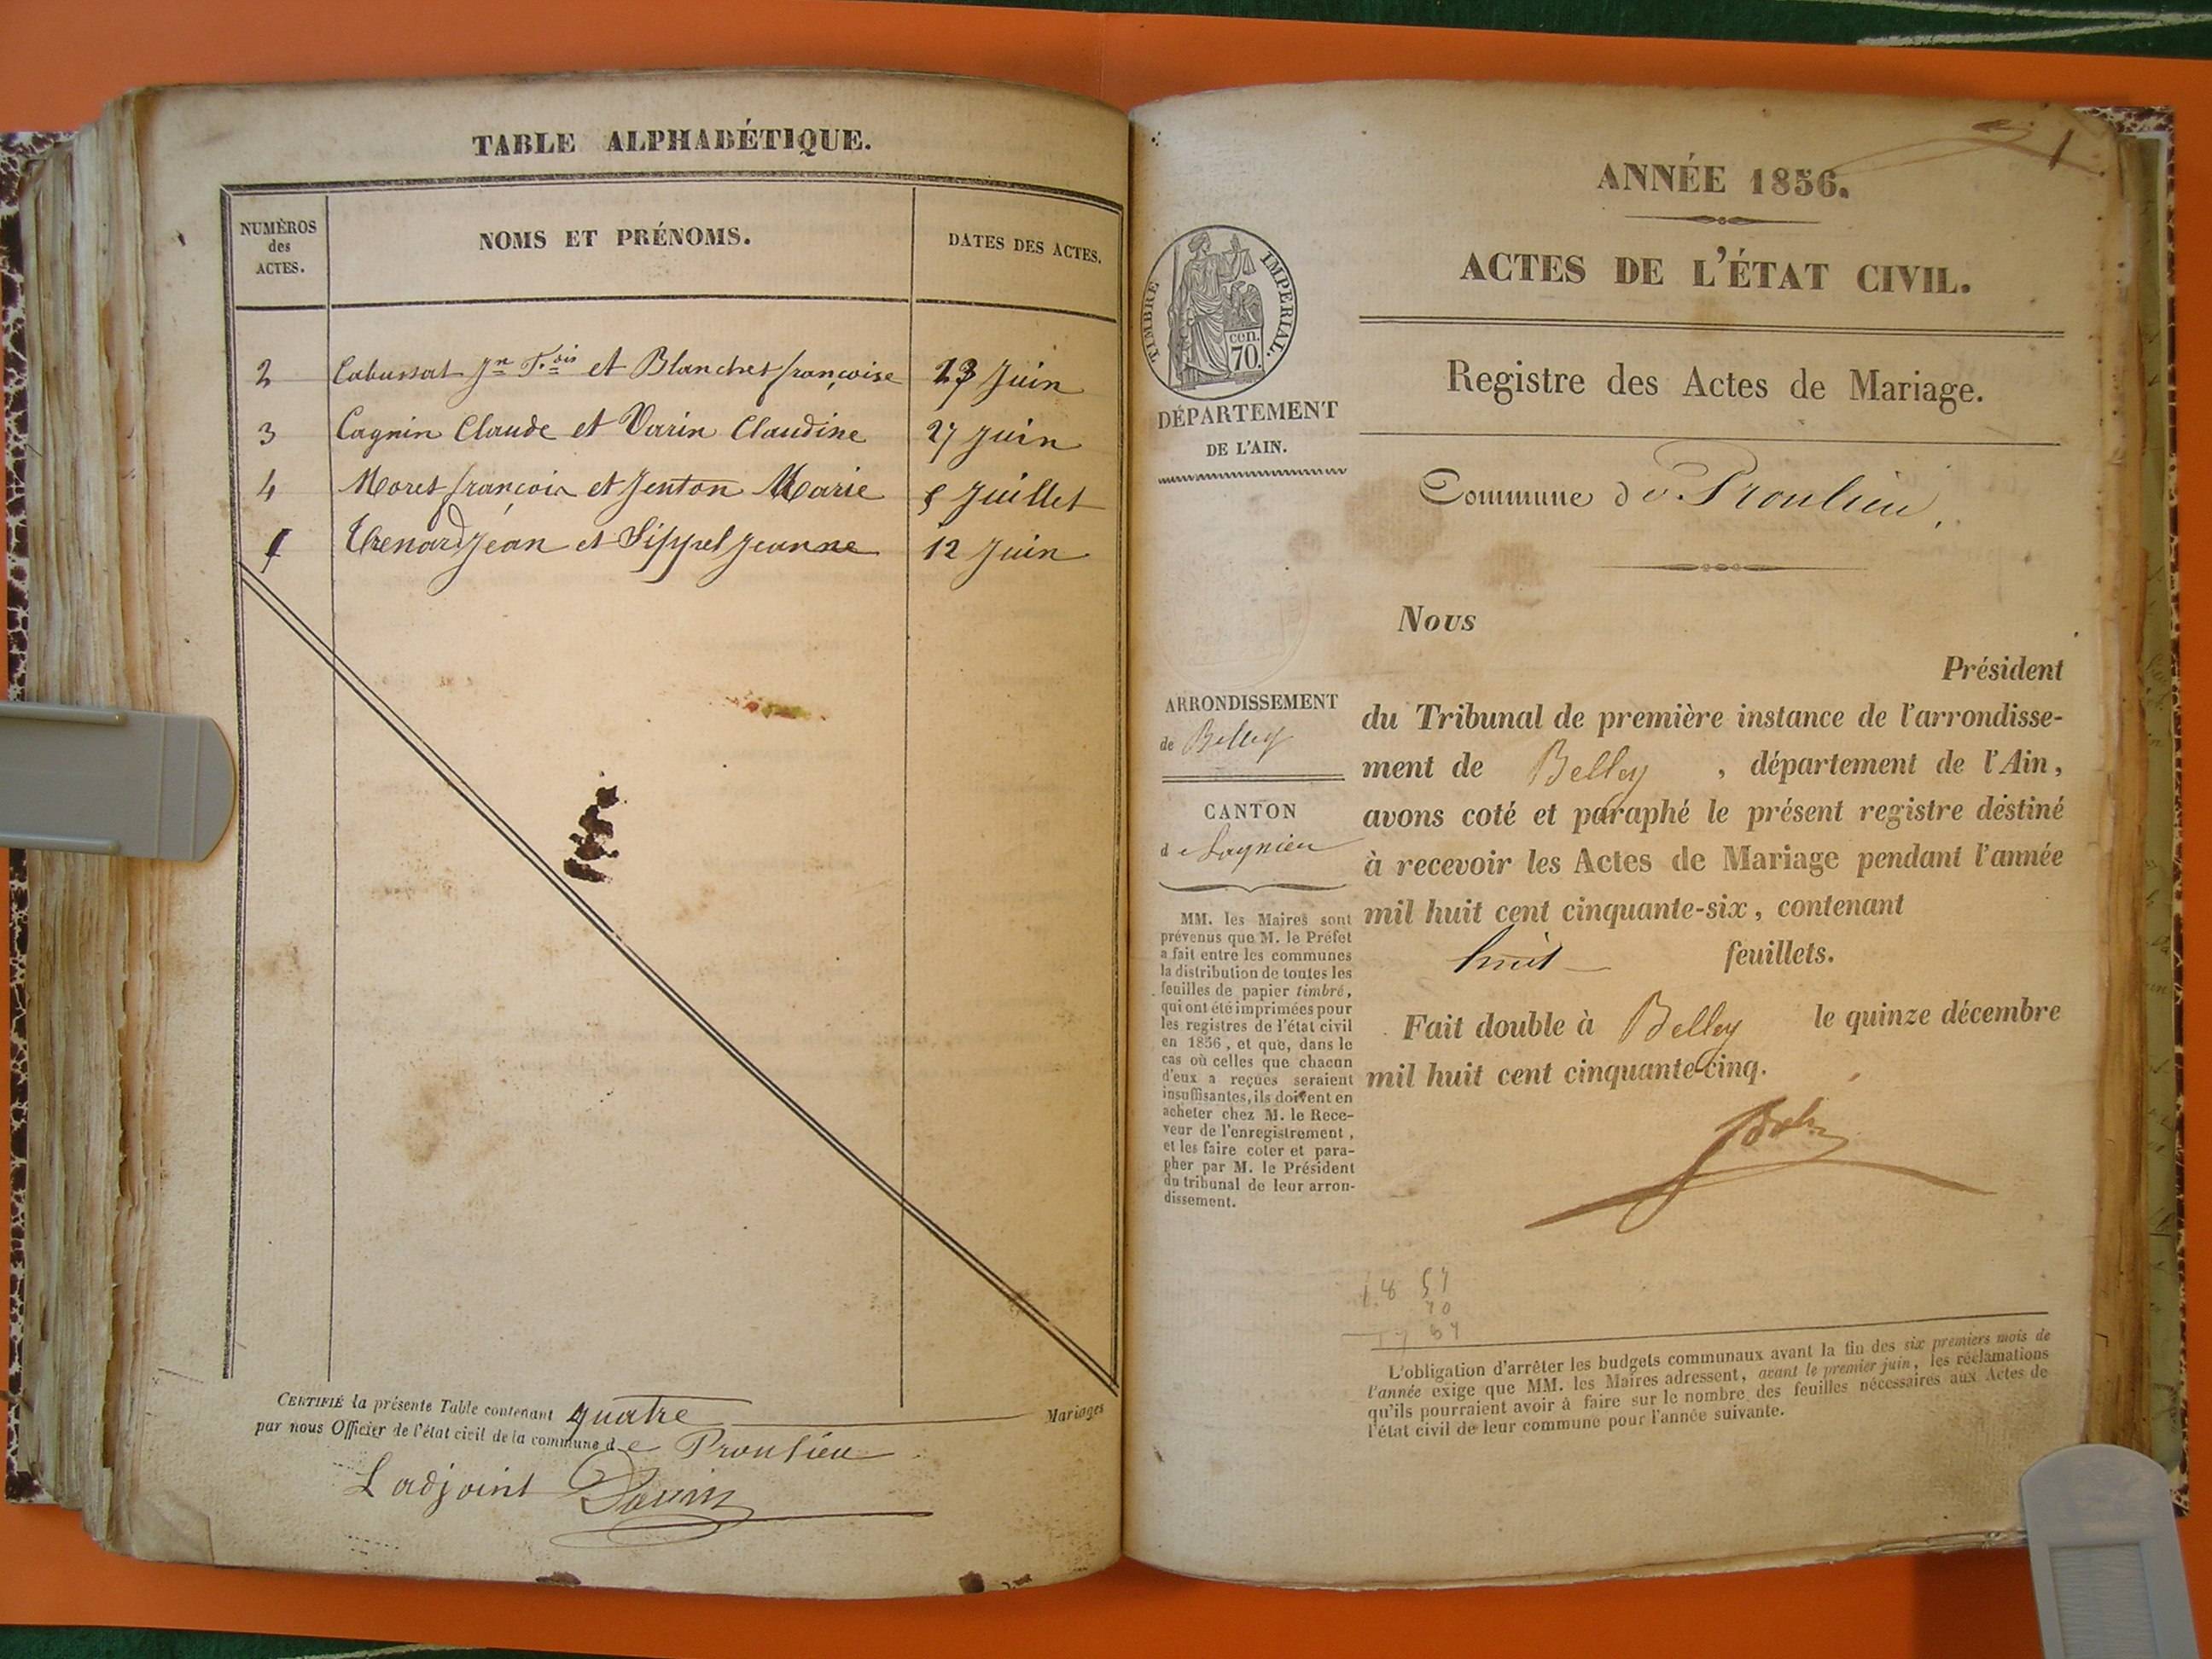 TABLE ALPHABÉTIQUE.
NUMÉROS des ACTES.
NOMS ET PRÉNOMS.
DATES DES ACTES.
2 Cabussat Jn F.ois et Blanchet françoise 23 Juin
3 Cagnin Claude et Varin Claudine 27 Juin
4 Moret françois et Jenton Marie 5 Juillet
1 Thenard Jean et Sippel Jeanne 12 Juin
CERTIFIÉ la présente Table contenant quatre Mariages
par nous Officier de l'état civil de la commune de Proulieu
L adjoint
1
ANNÉE 1856.
ACTES DE L'ÉTAT CIVIL.
Registre des Actes de Mariage.
TIMBRE IMPERIAL.
70. cen.
DÉPARTEMENT
DE L'AIN.
Commune de Proulieu,
Nous
Président
ARRONDISSEMENT
de Belley
CANTON
de Lagnieu
du Tribunal de première instance de l'arrondisse-
ment de Belley , département de l'Ain,
avons coté et paraphé le présent registre destiné
à recevoir les Actes de Mariage pendant l'année
mil huit cent cinquante-six, contenant
huit feuillets.
Fait double à Belley le quinze décembre
mil huit cent cinquante-cinq.
MM. les Maires sont
prévenus que M. le Préfet
a fait entre les communes
la distribution de toutes les
feuilles de papier timbré,
qui ont été imprimées pour
les registres de l'état civil
en 1856, et que, dans le
cas où celles que chacun
d'eux a reçues seraient
insuffisantes, ils doivent en
acheter chez M. le Rece-
veur de l'enregistrement,
et les faire coter et para-
pher par M. le Président
du tribunal de leur arron-
dissement.
L'obligation d'arrêter les budgets communaux avant la fin des six premiers mois de
l'année exige que MM. les Maires adressent, avant le premier juin, les réclamations
qu'ils pourraient avoir à faire sur le nombre des feuilles nécessaires aux Actes de
l'état civil de leur commune pour l'année suivante.